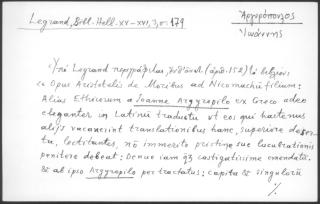 Legrand, Bibl. Hell. XV-XVI, 3, σ. 179
Ἀργυρόπουλος
Ἰωάννης
Legrand περιγράφεται, (ἀριθ. 152) τὸ βιβλίον
Opus Aristotelis de Moribus ad Nicomachum filium:
Alias Ethicorum a Joanne Argyropilo ex Greco adeo
eleganter in Latinū traductū vt eos qui hactenus
alijs vacauerint translationibus hanc, superiore
lectitantes, nō immerito pristine sue lucubrationis
penitere debeat: Denuo iam castigatissime emendatū.
& ab ipso Argyropilo per tractatus: capita & singulorū
./.